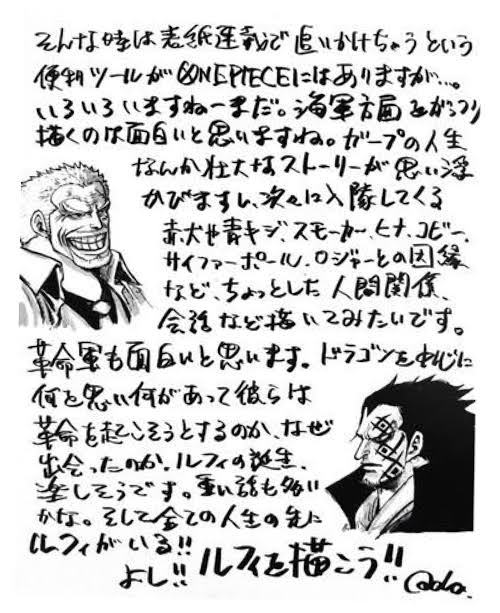 そんな時は表紙連載で追いかけちゃうという
便利ツールがONE PIECEにはありますが…。
いろいろいますねーまだ。海軍方面をがっつり
描くのは面白いと思いますね。ガープの人生
なんか壮大なストーリーが思い浮
かびますし、次々に入隊してくる
赤犬や青キジ、スモーカー、ヒナ、コビー、
サイファーポール、ロジャーとの因縁
など、ちょっとした人間関係、
会話など描いてみたいです。
革命軍も面白いと思います。ドラゴンをはじめに
何を思い何があって彼らは
革命を起こそうとするのか、なぜ
出会ったのか。ルフィの誕生、
楽しそうです。重い話も多い
かな。そして全ての人生の先に
ルフィがいる!!
よし!!ルフィを描こう!!